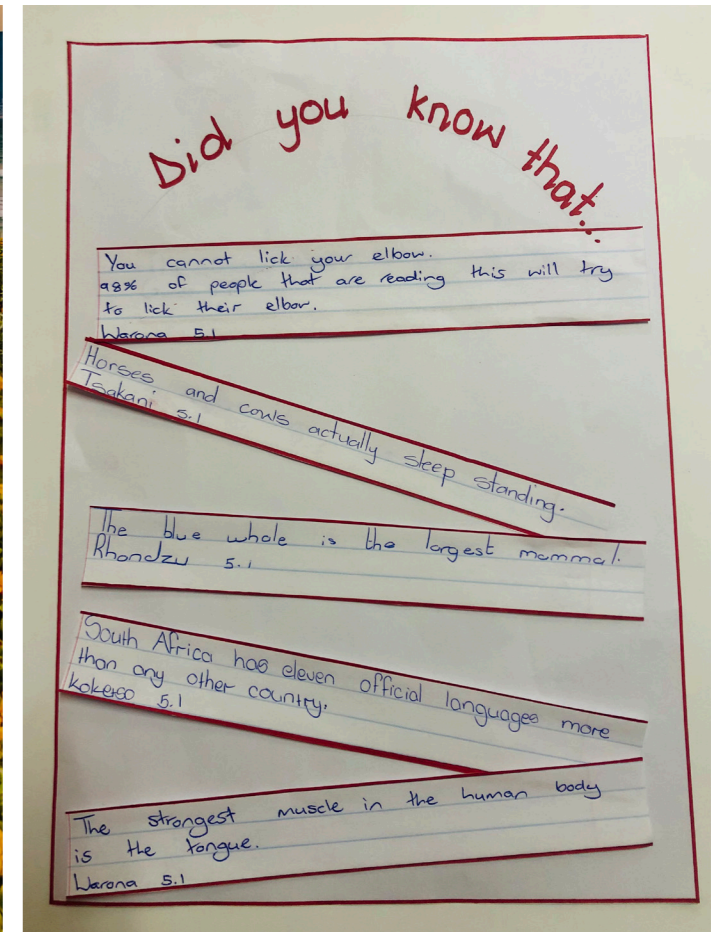 Did you know that...
You cannot lick your elbow.
98% of people that are reading this will try
to lick their elbow.
Warona 5.1
Horses and cows actually sleep standing.
Tsakani 5.1
The blue whale is the largest mammal.
Rhandzu 5.1
South Africa has eleven official languages more
than any other country.
Koketso 5.1
The strongest muscle in the human body
is the tongue.
Warona 5.1